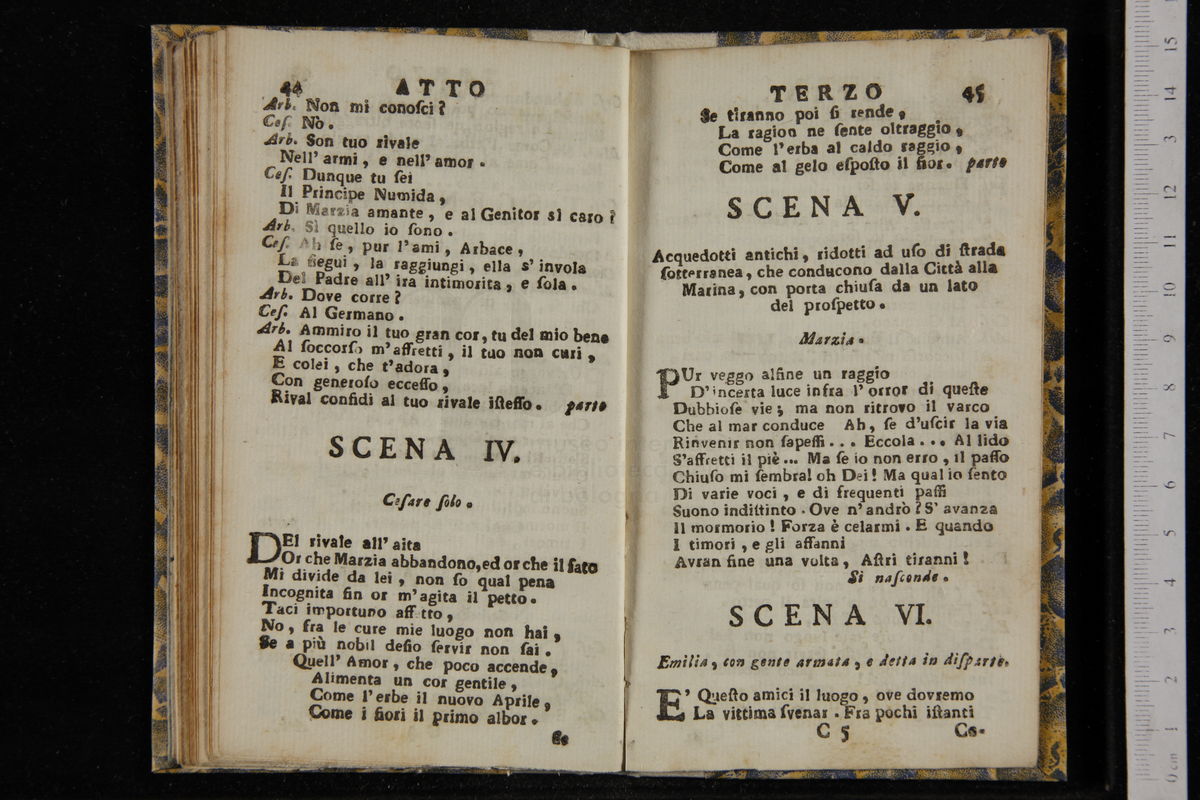 44 ATTO
Arb. Non mi conoſci?
Ceſ. Nò.
Arb. Son tuo rivale
Nell' armi, e nell' amor.
Ceſ. Dunque tu ſei
Il Principe Numida,
Di Marzia amante, e al Genitor sì caro?
Arb. Sì quello io ſono.
Ceſ. Ah ſe, pur l'ami, Arbace,
La ſiegui, la raggiungi, ella s' invola
Del Padre all' ira intimorita, e ſola.
Arb. Dove corre?
Ceſ. Al Germano.
Arb. Ammiro il tuo gran cor, tu del mio bene
Al ſoccorſo m'affretti, il tuo non curi,
E colei, che t'adora,
Con generoſo ecceſſo,
Rival confidi al tuo rivale iſteſſo. parte
SCENA IV.
Ceſare ſolo.
DEl rivale all' aita
Or che Marzia abbandono, ed or che il fato
Mi divide da lei, non ſo qual pena
Incognita fin or m'agita il petto.
Taci importuno aff tto,
No, fra le cure mie luogo non hai,
Se a più nobil deſio ſervir non ſai.
Quell' Amor, che poco accende,
Alimenta un cor gentile,
Come l'erbe il nuovo Aprile,
Come i fiori il primo albor.
Se
TERZO 45
Se tiranno poi ſi rende,
La ragion ne ſente oltraggio,
Come l'erba al caldo raggio,
Come al gelo eſpoſto il fior. parte
SCENA V.
Acquedotti antichi, ridotti ad uſo di ſtrada
ſotterranea, che conducono dalla Città alla
Marina, con porta chiuſa da un lato
del proſpetto.
Marzia.
PUr veggo alfine un raggio
D'incerta luce infra l' orror di queſte
Dubbioſe vie; ma non ritrovo il varco
Che al mar conduce Ah, ſe d'uſcir la via
Rinvenir non ſapeſſi... Eccola... Al lido
S'affretti il piè... Ma ſe io non erro, il paſſo
Chiuſo mi ſembra! oh Dei! Ma qual io ſento
Di varie voci, e di frequenti paſſi
Suono indiſtinto. Ove n'andrò? S' avanza
Il mormorio! Forza è celarmi. E quando
I timori, e gli affanni
Avran fine una volta, Aſtri tiranni!
Si naſconde.
SCENA VI.
Emilia, con gente armata, e detta in diſparte.
E' Queſto amici il luogo, ove dovremo
La vittima ſvenar. Fra pochi iſtanti
C 5 Ce-